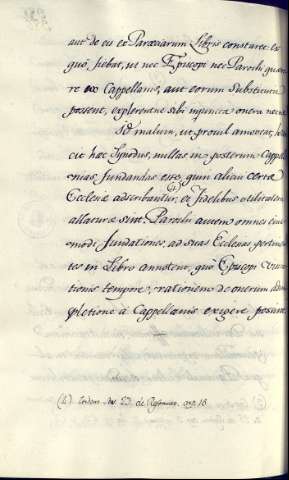 aut de eis ex Paræciarum Libris constaret ex
quo, fiebat, ut nec Episcopi nec Parochi quære
re ex Cappellanis, aut eorum Substitutis
possent, explerentne sibi injuncta onera necne.
Id malum, ut procul amoveat,
cit hæc Synodus, nullas in posterum Cappella
nias, fundandas esse, quin alicui certæ
Ecclesiæ adscribantur, (k) et fidelibus utilitatem
allaturæ sint. Parochi autem omnes ejus
modi fundationes, ad suas Ecclesias pertinen
tes in Libro annotent, quo Episcopi
tionis tempore, rationem de onerum
pletione à Cappellanis exigere possint.
cap. 18.